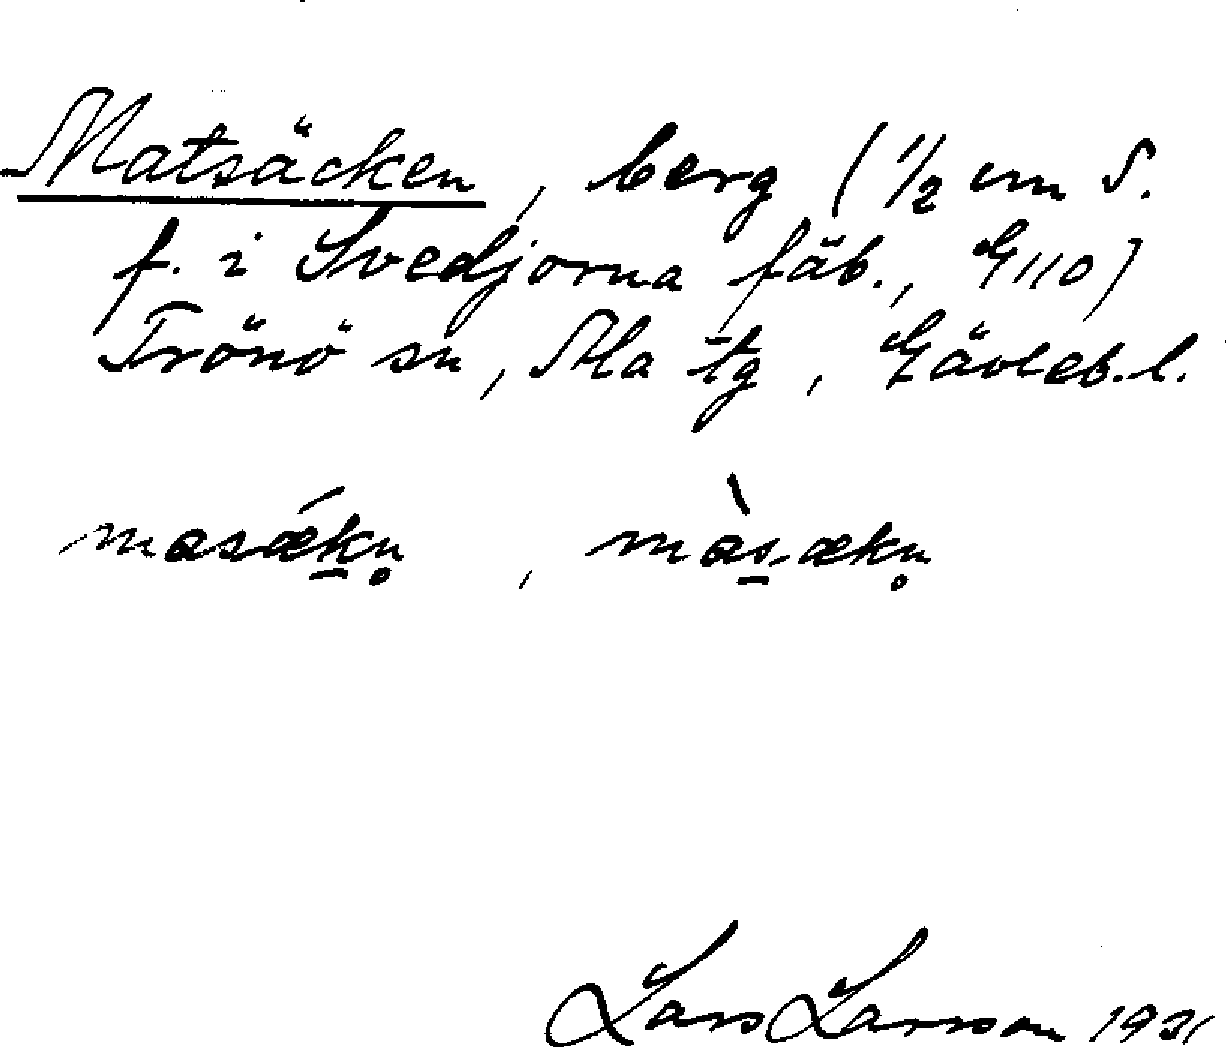 Matsäcken, berg (1/2 cm S.
f. i Svedjorna fäb., G110)
Trönö sn, Ala tg, Gävleb. l.
masǽ̠kn̥, màs̠ækn̥
Lars Larsson 1931